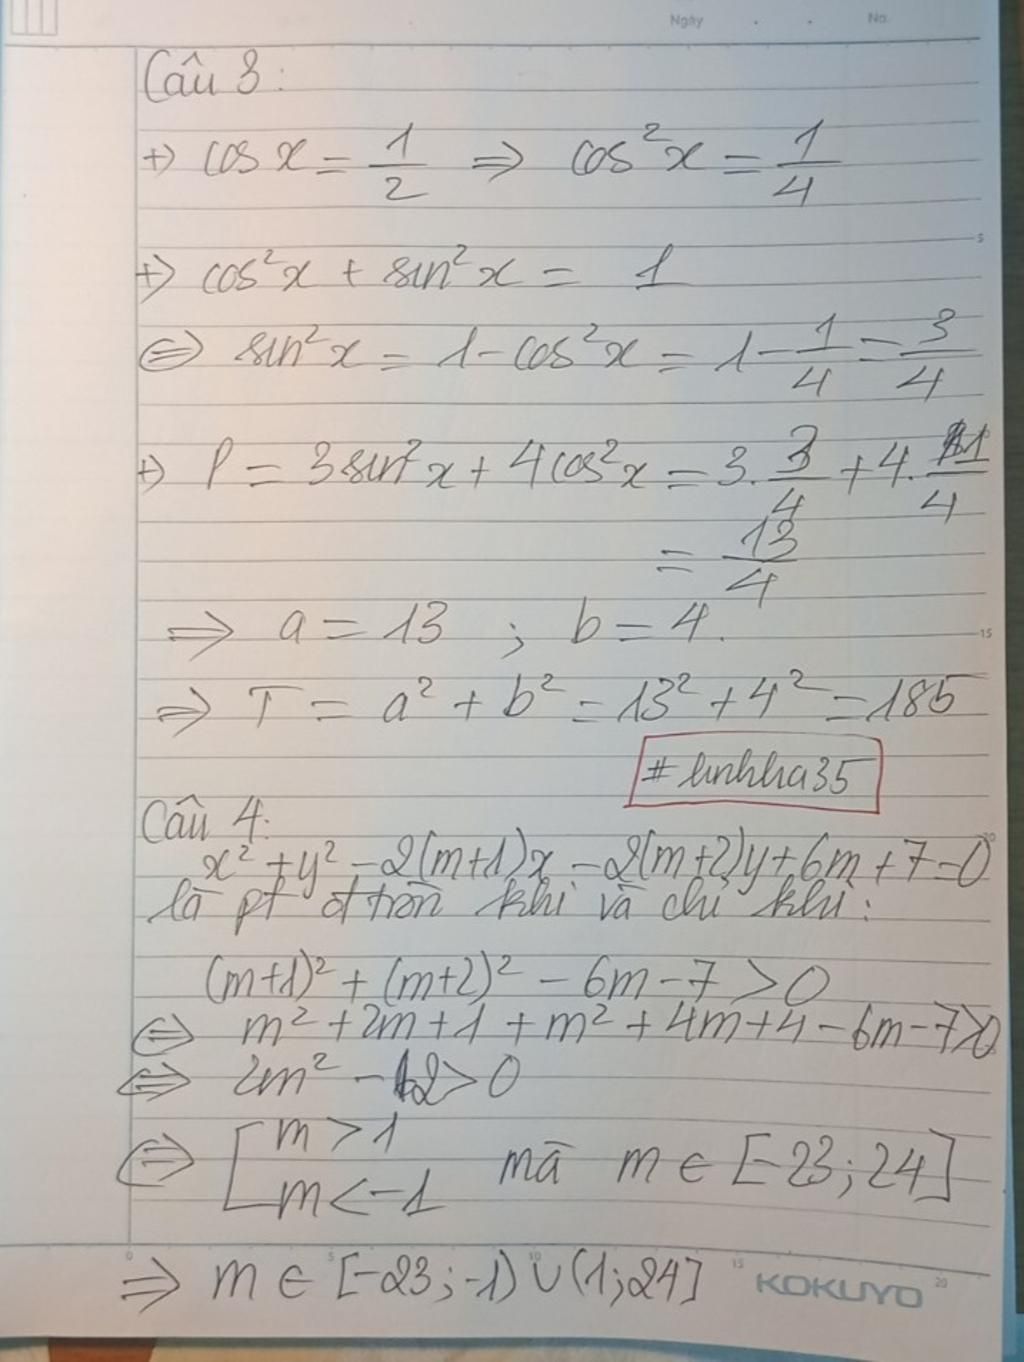 Ngày . . No.
Câu 3:
+) cos x = 1/2 ⇒ cos²x = 1/4
+) cos²x + sin²x = 1
⇔ sin²x = 1 - cos²x = 1 - 1/4 = 3/4
+) P = 3sin²x + 4cos²x = 3. 3/4 + 4. 1/4
= 13/4
⇒ a = 13 ; b = 4.
⇒ T = a² + b² = 13² + 4² = 185
#linhha35
Câu 4:
x² + y² - 2(m+1)x - 2(m+2)y + 6m + 7 = 0
là pt đtròn khi và chỉ khi:
(m+1)² + (m+2)² - 6m - 7 > 0
⇔ m² + 2m + 1 + m² + 4m + 4 - 6m - 7 > 0
⇔ 2m² - 2 > 0
⇔ [ m > 1
m < -1 mà m ∈ [-23; 24]
⇒ m ∈ [-23; -1) ∪ (1; 24]
KOKUYO